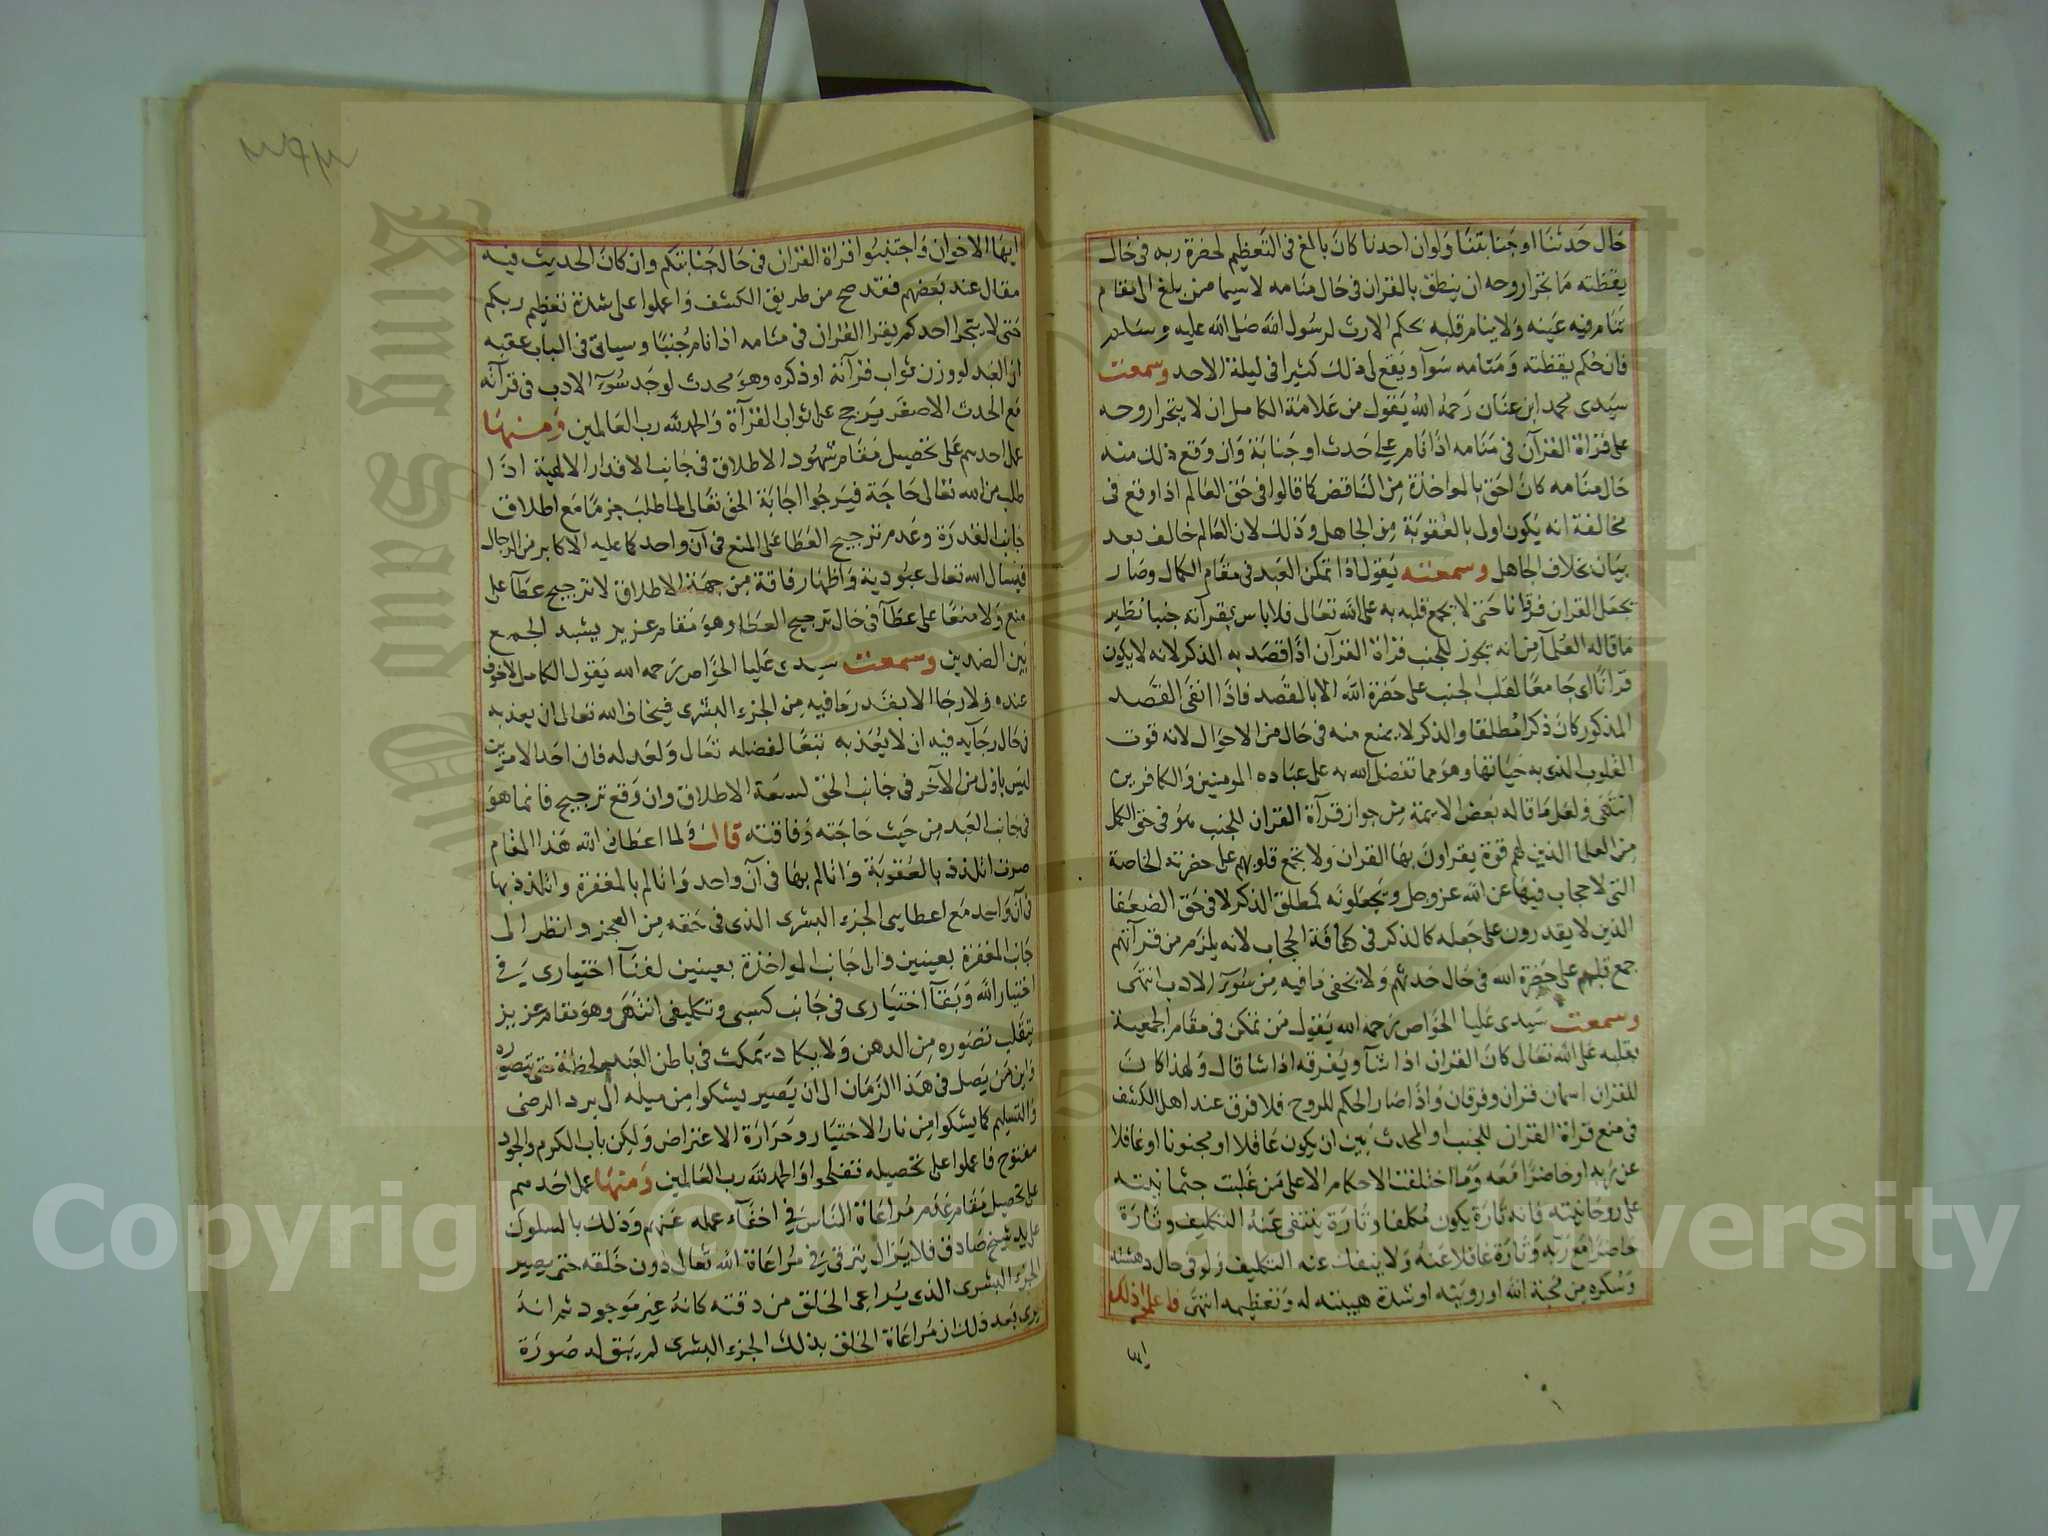 حال حدثنا او جنابتنا ولو ان احدنا كان بالغ فى التعظيم لحضرة ربه فى حال
يقظته ما تجرا روحه ان ينطق بالقران فى حال منامه لا سيما من بلغ الى مقام
تنام فيه عينه ولا ينام قلبه بحكم الارث لرسول الله صلى الله عليه وسلم
فان حكم يقظته ومنامه سوآ ويقع لى ذلك كثيرا فى ليلة الاحد وسمعت
سيدى محمد ابن عنان رحمه الله يقول من علامة الكامل ان لا يتجرا روحه
على قراة القرآن فى منامه اذا نام على حدث او جنابة وان وقع ذلك منه
حال منامه كان احق بالمواخذة من الناقص كما قالوا فى حق العالم اذا وقع فى
مخالفة انه يكون اولى بالعقوبة من الجاهل وذلك لان العالم خالف بعد
بيان بخلاف الجاهل وسمعته يقول اذا تمكن العبد فى مقام الكمال وصار
يجعل القران فرقانا حتى لا يجمع قلبه به على الله تعالى فلا باس بقرآته جنبا نظير
ما قاله العلمآ من انه يجوز للجنب قراة القرآن اذا قصد به الذكر لانه لا يكون
قرآنا اى جامعا لقلب الجنب على حضرة الله الا بالقصد فاذا انتفى القصد
المذكور كان ذكرا مطلقا والذكر لا يمنع منه فى حال من الاحوال لانه قوت
القلوب الذى به حياتها وهو مما تفضل الله به على عباده المومنين والكافرين
انتهى ولعل ما قاله بعض الايمة من جواز قرآة القران للجنب هو فى حق الكمل
من العلما الذين لهم قوة يقراون بها القران ولا تجمع قلوبهم على حضرته الخاصة
التى لا حجاب فيها عن الله عز وجل ويجعلونه كمطلق الذكر لا فى حق الضعفا
الذين لا يقدرون على جعله كالذكر فى كثافة الحجاب لانه يلزم من قرآتهم
جمع قلبهم على حضرة الله فى حال حدثهم ولا يخفى ما فيه من سوء الادب انتهى
وسمعت سيدى عليا الخواص رحمه الله يقول من تمكن فى مقام الجمعية
بقلبه على الله تعالى كان القران اذا شآ ويفرقه اذا شا قال ولهذا كان
للقران اسمان قران وفرقان واذا صار الحكم للروح فلا فرق عند اهل الكشف
فى منع قراة القران للجنب او المحدث بين ان يكون عاقلا او مجنونا او غافلا
عن ربه او حاضرا معه وما اختلفت الاحكام الا على من غلبت جثمانيته
على روحانيته فانه تارة يكون مكلفا وتارة ينتفى عنه التكليف وتارة
حاضرا مع ربه وتارة غافلا عنه ولا ينفك عنه التكليف ولو فى حال دهشته
وسكره من محبة الله او رويته او شدة هيبته له وتعظيمه انتهى فاعلم ذلك
ايها الاخوان واجتنبوا قراة القران فى حال جنابتكم وان كان الحديث فيه
مقال عند بعضهم فقد صح من طريق الكشف واعملوا على شدة تعظيم ربكم
حتى لا يتجرا احدكم يقرا القران فى منامه اذا نام جنبا وسياتى فى الباب عقبه
ان العبد لو وزن ثواب قرآنه او ذكره وهو محدث لوجد سوء الادب فى قرآته
مع الحدث الاصغر يرجح على ثواب القرآة والحمد لله رب العالمين ومنها
عمل احدهم على تحصيل مقام شهود الاطلاق فى جانب الاقدار الالهية اذا
طلب من الله تعالى حاجة فيرجوا اجابة الحق تعالى لما طلب جزما مع اطلاق
جانب القدرة وعدم ترجيح العطا على المنع فى آن واحد كما عليه الاكابر من الرجال
فيسال الله تعالى عبودية واظهار فاقة من جهة الاطلاق لا ترجيح عطآ على
منع ولا منعا على عطآ فى حال ترجيح العطا وهو مقام عزيز يشبه الجمع
بين الضدين وسمعت سيدى عليا الخواص رحمه الله يقول الكامل لا خوف
عنده ولا رجا الا بقدر ما فيه من الجزء البشرى فيخاف الله تعالى ان يعذبه
فى حال رجآيه فيه ان لا يعذبه تبعا لفضله تعالى ولعدله فان احد الامرين
ليس باولى من الآخر فى جانب الحق لسعة الاطلاق وان وقع ترجيح فانما هو
فى جانب العبد من حيث حاجته وفاقته قال ولما اعطانى الله هذا المقام
صرت اتلذذ بالعقوبة واتالم بها فى آن واحد واتالم بالمغفرة واتلذذ بها
فى آن واحد مع اعطايى الجزء البشرى الذى فى حقه من العجز وانظر الى
جانب المغفرة بعينين والى جانب المواخذة بعينين لفنآ اختيارى فى
اختيار الله وبقآ اختيارى فى جانب كسبى وتكليفى انتهى وهو مقام عزيز
يتقلب تصوره من الذهن ولا يكاد يمكث فى باطن العبد لحظة حتى يتصوره
واين من يصل فى هذا الزمان الى ان يصير يشكوا من ميله الى برد الرضى
والتسليم كما يشكوا من نار الاختيار وحرارة الاعتراض ولكن باب الكرم والجود
مفتوح فاعملوا على تحصيله تفلحوا والحمد لله رب العالمين ومنها عمل احدهم
على تحصيل مقام عدم مراعاة الناس فى اخفآء عمله عنهم وذلك بالسلوك
على يد شيخ صادق فلا يزال يترقى فى مراعاة الله تعالى دون خلقه حتى يصير
الجزء البشرى الذى يراعى الخلق من دقته كانه غير موجود ثم انه
يرى بعد ذلك ان مراعاة الخلق بذلك الجزء البشرى لم يبق له صورة
Copyright © King Saud University
King Saud University